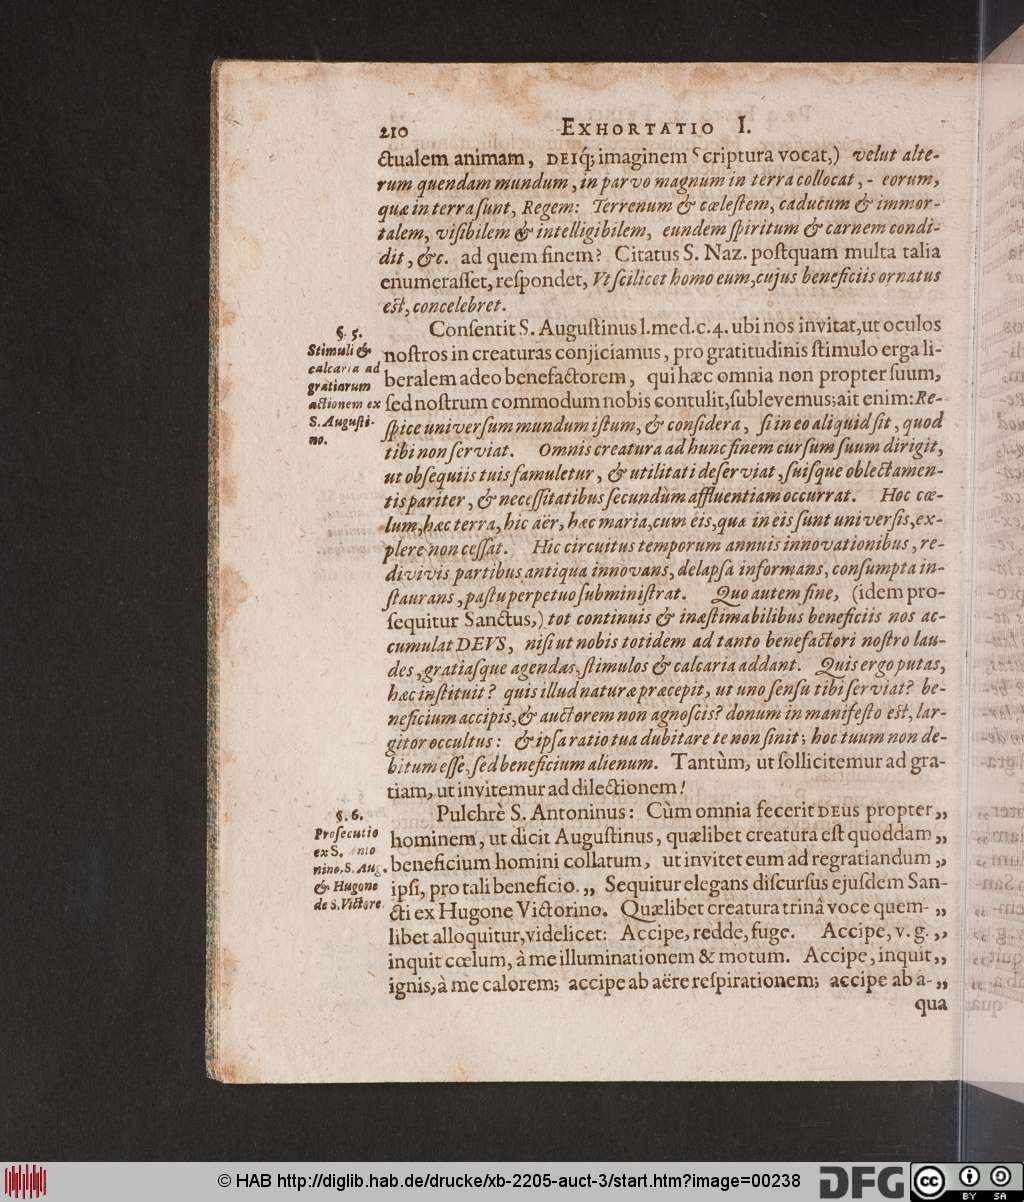 210 EXHORTATIO I.
ctualem animam, DEIq́; imaginem Scriptura vocat,) velut alte-
rum quendam mundum, in parvo magnum in terra collocat, - eorum,
quæ in terra ſunt, Regem: Terrenum & cæleſtem, caducum & immor-
talem, viſibilem & intelligibilem, eundem ſpiritum & carnem condi-
dit, &c. ad quem finem? Citatus S. Naz. poſtquam multa talia
enumeraſſet, reſpondet, Vt ſcilicet homo eum, cujus beneficiis ornatus
eſt, concelebret.
§. 5.
Stimuli &
calcaria ad
gratiarum
actionem ex
S. Auguſti-
no.
Conſentit S. Auguſtinus l. med. c. 4. ubi nos invitat, ut oculos
noſtros in creaturas conjiciamus, pro gratitudinis ſtimulo erga li-
beralem adeo benefactorem, qui hæc omnia non propter ſuum,
ſed noſtrum commodum nobis contulit, ſublevemus; ait enim: Re-
ſpice univerſum mundum iſtum, & conſidera, ſi in eo aliquid ſit, quod
tibi non ſerviat. Omnis creatura ad hunc finem curſum ſuum dirigit,
ut obſequiis tuis famuletur, & utilitati deſerviat, ſuiſque oblectamen-
tis pariter, & neceſſitatibus ſecundùm affluentiam occurrat. Hoc cæ-
lum, hæc terra, hic aër, hæc maria, cum eis, quæ in eis ſunt univerſis, ex-
plere non ceſſat. Hic circuitus temporum annuis innovationibus, re-
divivis partibus antiqua innovans, delapſa informans, conſumpta in-
ſtaurans, paſtu perpetuo ſubminiſtrat. Quo autem fine, (idem pro-
ſequitur Sanctus,) tot continuis & inæſtimabilibus beneficiis nos ac-
cumulat DEVS, niſi ut nobis totidem ad tanto benefactori noſtro lau-
des, gratiaſque agendas, ſtimulos & calcaria addant. Quis ergo putas,
hæc inſtituit? quis illud naturæ præcepit, ut uno ſenſu tibi ſerviat? be-
neficium accipis, & auctorem non agnoſcis? donum in manifeſto eſt, lar-
gitor occultus: & ipſa ratio tua dubitare te non ſinit; hoc tuum non de-
bitum eſſe, ſed beneficium alienum. Tantùm, ut ſollicitemur ad gra-
tiam, ut invitemur ad dilectionem!
§. 6.
Proſecutio
ex S. Anto
nino, S. Aug.
& Hugone
de S. Victore.
Pulchrè S. Antoninus: Cùm omnia fecerit DEUS propter „
hominem, ut dicit Auguſtinus, quælibet creatura eſt quoddam „
beneficium homini collatum, ut invitet eum ad regratiandum „
ipſi, pro tali beneficio. „ Sequitur elegans diſcurſus ejuſdem San-
cti ex Hugone Victorino. Quælibet creatura trinâ voce quem- „
libet alloquitur, videlicet: Accipe, redde, fuge. Accipe, v. g. „
inquit cœlum, à me illuminationem & motum. Accipe, inquit „
ignis, à me calorem; accipe ab aëre reſpirationem; accipe ab a- „
qua
© HAB http://diglib.hab.de/drucke/xb-2205-auct-3/start.htm?image=00238
DFG
cc BY SA